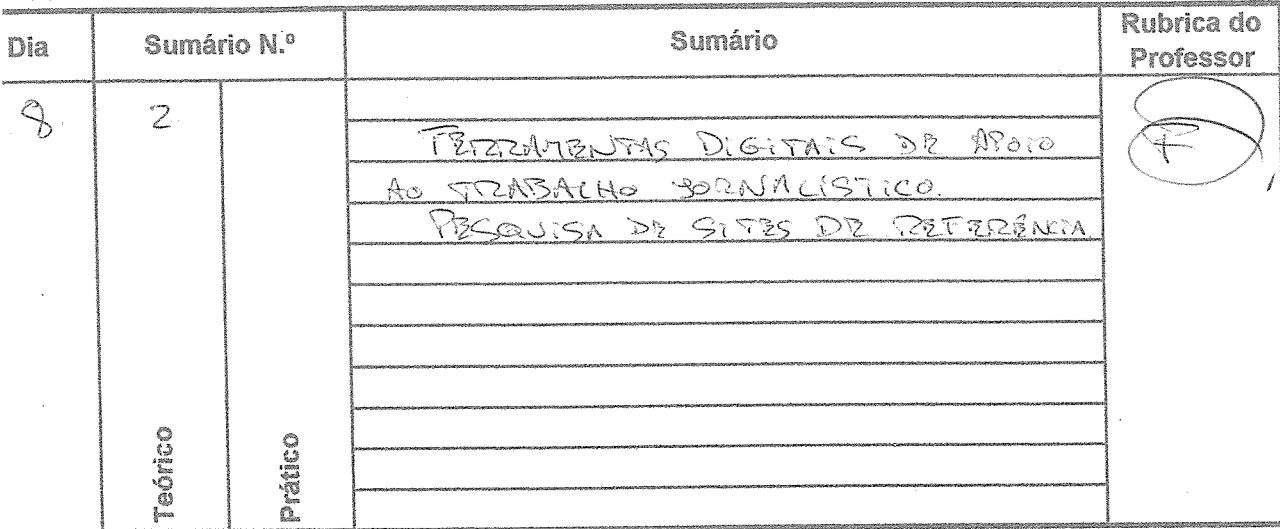 Dia Sumário N.º Sumário Rubrica do Professor
8 2
FERRAMENTAS DIGITAIS DE APOIO
AO TRABALHO JORNALÍSTICO.
PESQUISA DE SITES DE REFERÊNCIA
Teórico
Prático